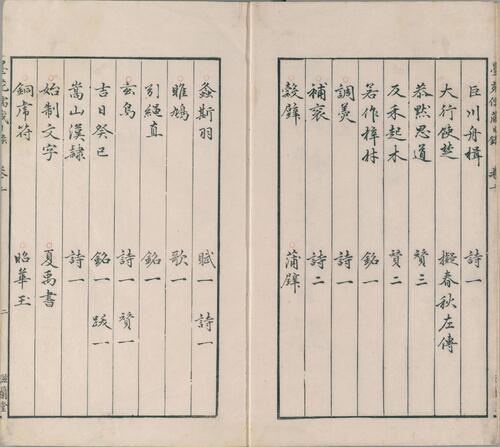 巨川舟楫 詩一
大行使楚 擬春秋左傳
恭默思道 賛三
反禾起木 賛二
若作梓材 銘一
調羹 詩一
補袞 詩二
穀璧 蒲璧
螽斯羽 賦一 詩一
雎鳩 歌一
引繩直 銘一
玄鳥 詩一 賛一
吉日癸巳 銘一 跋一
嵩山漢隸 詩一
始制文字 夏禹書
銅虎符 昭華玉
二 滋蘭堂